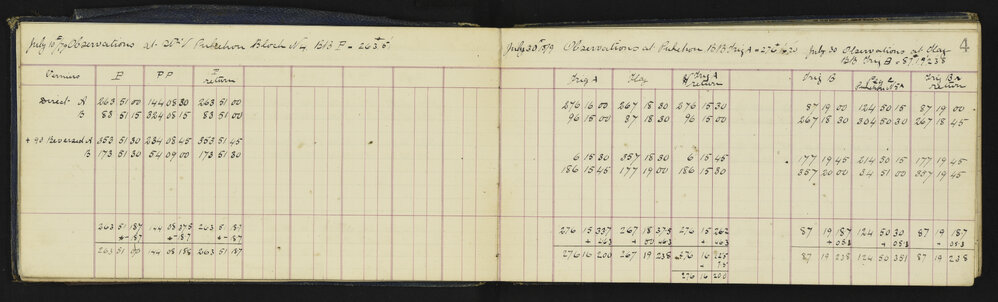 July 10th /79 Observations at Pukeehou Block No 4 B/B P = 263° 51'
Verniers P PP P return
Direct A 263 51 00 144 08 30 263 51 00
B 83 51 15 324 08 15 83 51 00
+ 90 Reversed A 353 51 30 234 08 45 353 51 45
B 173 51 30 54 09 00 173 51 30
263 51 187 144 08 375 263 51 187
263 51 00 144 08 188 263 51 187
July 30th 1879 Observations at Pukeehou B/B Trig A = 276° 16' 20 July 30 Observations at Flag
B/B Trig B = 87° 19' 23.8
4
Trig A Flag Trig A return Trig B Peg 2 Trig B return
276 16 00 267 18 30 276 15 30 87 19 00 124 50 15 87 19 00
96 15 00 87 18 30 96 15 00 267 18 30 304 50 30 267 18 45
6 15 30 357 18 30 6 15 45 177 19 45 214 50 15 177 19 45
186 15 45 177 19 00 186 15 30 357 20 00 34 51 00 357 19 45
276 15 337 267 18 375 276 15 262 87 19 187 124 50 30 87 19 187
+ 463 + 00 463 + 463 + 05.1 + 05.1
276 16 200 267 19 238 87 19 238 124 50 351 87 19 238
276 16 200